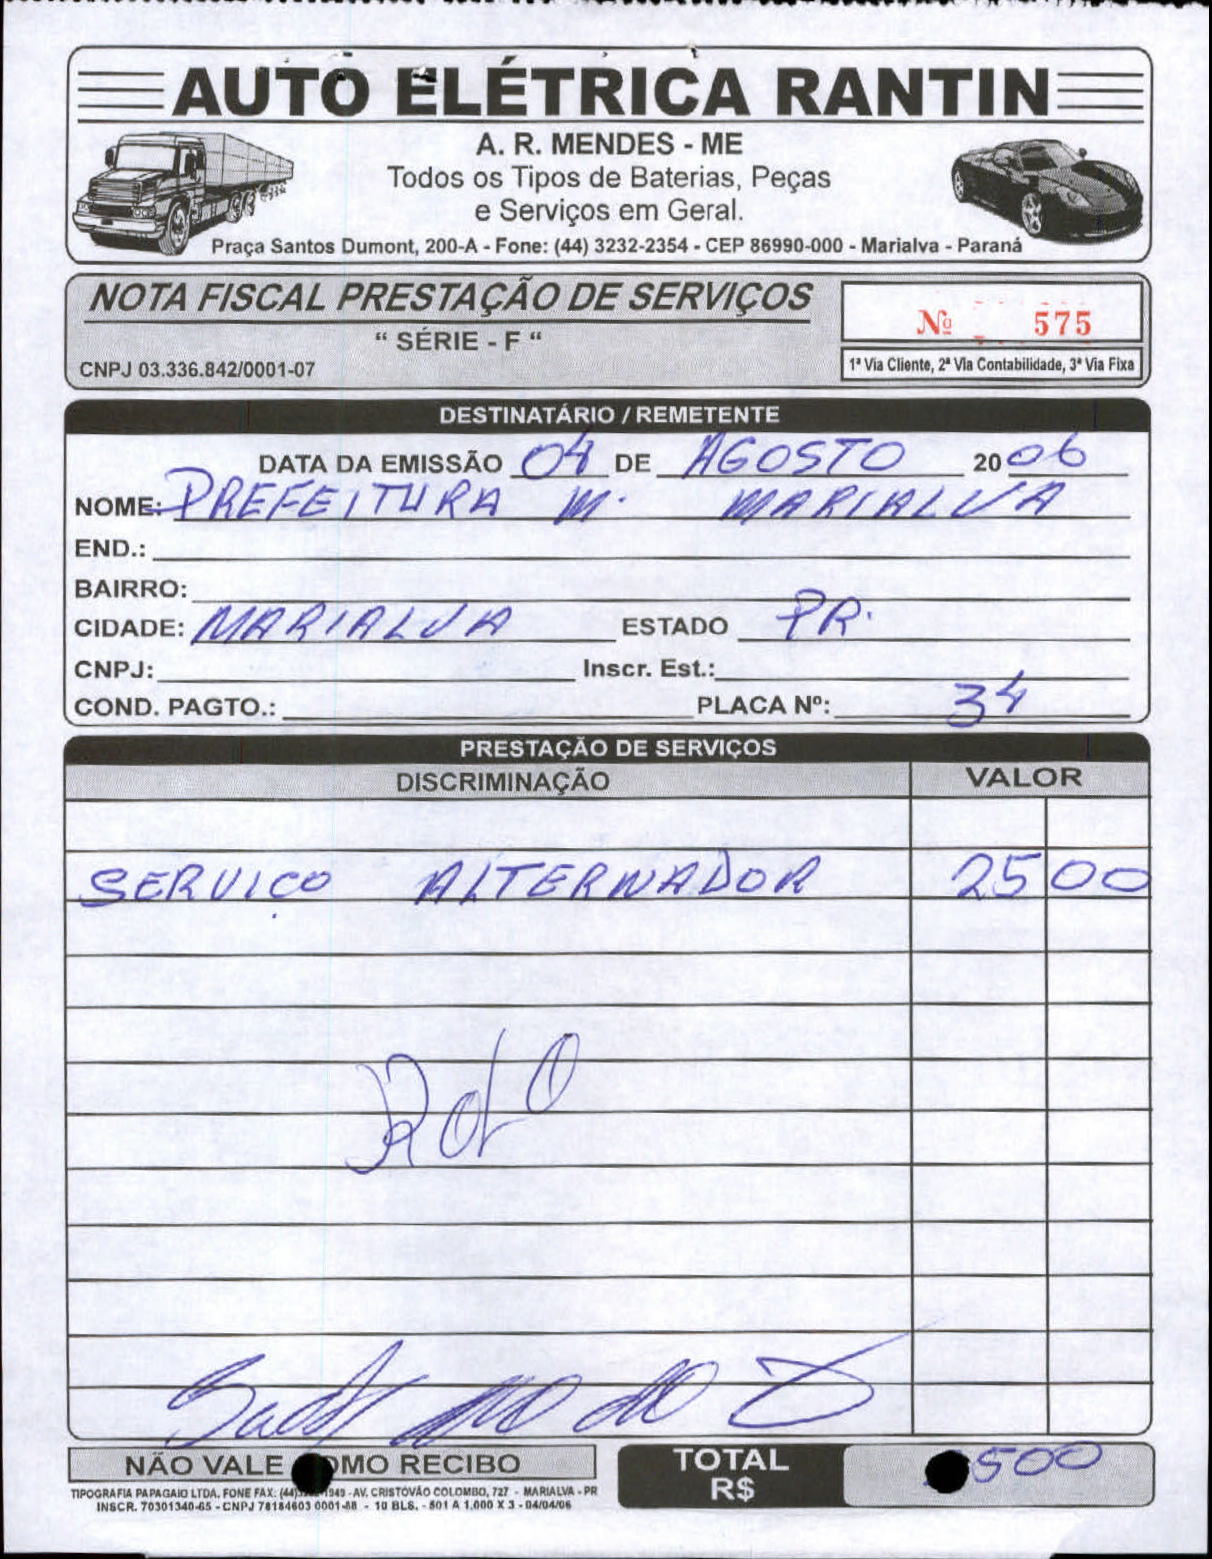 AUTO ELÉTRICA RANTIN
A. R. MENDES - ME
Todos os Tipos de Baterias, Peças
e Serviços em Geral.
Praça Santos Dumont, 200-A - Fone: (44) 3232-2354 - CEP 86990-000 - Marialva - Paraná
NOTA FISCAL PRESTAÇÃO DE SERVIÇOS
" SÉRIE - F "
CNPJ 03.336.842/0001-07
Nº 575
1ª Via Cliente, 2ª Via Contabilidade, 3ª Via Fixa
DESTINATÁRIO / REMETENTE
DATA DA EMISSÃO 04 DE AGOSTO 2006
NOME: PREFEITURA M. MARIALVA
END.:
BAIRRO:
CIDADE: MARIALVA ESTADO PR.
CNPJ: Inscr. Est.:
COND. PAGTO.: PLACA Nº: 34
PRESTAÇÃO DE SERVIÇOS
DISCRIMINAÇÃO VALOR
SERVIÇO ALTERNADOR 25 00
ROLO
NÃO VALE OMO RECIBO
TOTAL
R$ 500
TIPOGRAFIA PAPAGAIO LTDA. FONE FAX: (44) 1949 - AV. CRISTÓVÃO COLOMBO, 727 - MARIALVA - PR
INSCR. 70301340-65 - CNPJ 78184603 0001-88 - 10 BLS. - 501 A 1.000 X 3 - 04/04/06